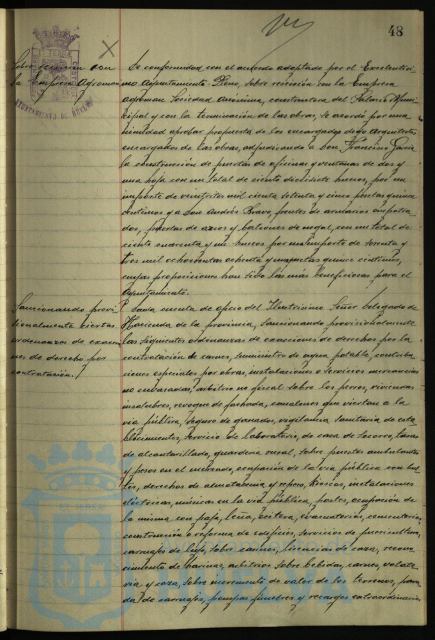 48
Sobre rescisión con
la Empresa Agroman
De conformidad con el acuerdo adoptado por el Excelentísi-
mo Ayuntamiento Pleno, sobre rescisión con la Empresa
Agroman Sociedad Anónima, constructora del Palacio Muni-
cipal y con la terminación de las obras, se acordó por una-
nimidad aprobar propuesta de los encargados digo Arquitectos
encargados de las obras, adjudicando a Don Francisco García
la construcción de puertas de oficinas y ventanas de dos y
una hoja con un total de ciento diecisiete huecos, por un
importe de veintiseis mil ciento setenta y cinco pesetas quince
céntimos y a Don Andrés Bravo frentes de armarios empotra-
dos, puertas de aseos y balcones de nogal, con un total de
ciento cuarenta y un huecos por un importe de sesenta y
tres mil ochocientas ochenta y una pesetas quince céntimos,
cuyas proposiciones han sido las más beneficiosas para el
Ayuntamiento.
Sancionando provi-
sionalmente ciertas
ordenanzas de exaccio-
nes de derecho por
contratación.
Dada cuenta de oficio del Ilustrísimo Señor Delegado de
Hacienda de la provincia, sancionando provisionalmente
las siguientes ordenanzas de exacciones de derechos por la
contratación de carnes, suministro de agua potable, contribu-
ciones especiales por obras, instalaciones o servicios, mercancías
no embarcadas, arbitrio no fiscal sobre los perros, viviendas
insalubres, revoque de fachada, canalones que viertan a la
vía pública, saqueo de ganados, vigilancia sanitaria de esta-
blecimientos, servicio de laboratorio, de casa de socorro, tasas
de alcantarillado, guardería rural, sobre puestos ambulantes
y pesos en el mercado, ocupación de la vía pública con bul-
tos, derechos de almotacenia y repeso, kioscos, instalaciones
eléctricas, músicas en la vía pública, postes, ocupación de
la misma con paja, leña, evacuatorios, cementerios,
construcción o reforma de edificios, servicios de puericultura,
carruajes de lujo, sobre carnes, licencias de caza, recono-
cimiento de harinas, arbitrios sobre bebidas, carnes, volate-
ría y caza, sobre incremento de valor de los terrenos, para-
da de carruajes, pompas fúnebres y recargo extraordinario